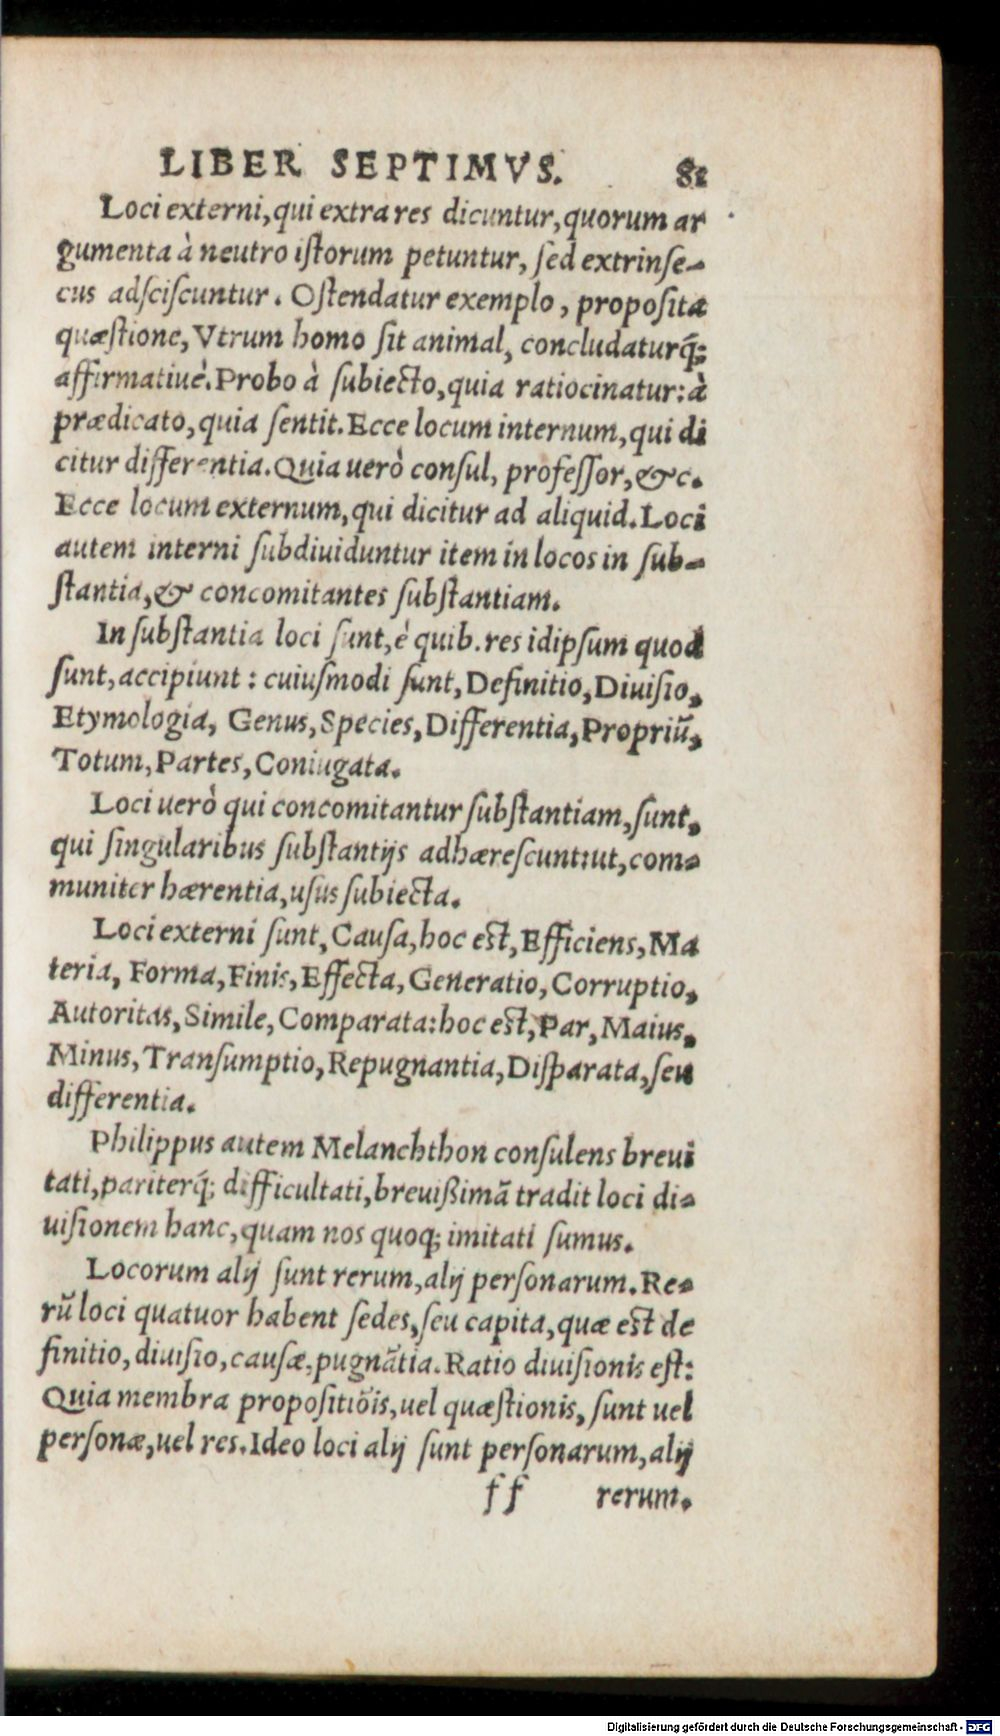 LIBER SEPTIMVS. 81
Loci externi, qui extra res dicuntur, quorum ar
gumenta à neutro iſtorum petuntur, ſed extrinſe-
cus adſciſcuntur. Oſtendatur exemplo, propoſita
quæſtione, Vtrum homo ſit animal, concludaturq́;
affirmatiuè. Probo à ſubiecto, quia ratiocinatur: à
prædicato, quia ſentit. Ecce locum internum, qui di
citur differentia. Quia uerò conſul, profeſſor, &c.
Ecce locum externum, qui dicitur ad aliquid. Loci
autem interni ſubdiuiduntur item in locos in ſub-
ſtantia, & concomitantes ſubſtantiam.
In ſubſtantia loci ſunt, è quib. res idipſum quod
ſunt, accipiunt: cuiuſmodi ſunt, Definitio, Diuiſio,
Etymologia, Genus, Species, Differentia, Propriũ,
Totum, Partes, Coniugata.
Loci uerò qui concomitantur ſubſtantiam, ſunt,
qui ſingularibus ſubſtantijs adhæreſcunt: ut, com-
muniter hærentia, uſus ſubiecta.
Loci externi ſunt, Cauſa, hoc eſt, Efficiens, Ma
teria, Forma, Finis, Effecta, Generatio, Corruptio,
Autoritas, Simile, Comparata: hoc eſt, Par, Maius,
Minus, Tranſumptio, Repugnantia, Diſparata, ſeu
differentia.
Philippus autem Melanchthon conſulens breui
tati, pariterq́; difficultati, breuißimã tradit loci di-
uiſionem hanc, quam nos quoq; imitati ſumus.
Locorum alij ſunt rerum, alij perſonarum. Re-
rũ loci quatuor habent ſedes, ſeu capita, quæ eſt de
finitio, diuiſio, cauſæ, pugnãtia. Ratio diuiſionis eſt:
Quia membra propoſitiõis, uel quæſtionis, ſunt uel
perſonæ, uel res. Ideo loci alij ſunt perſonarum, alij
ff rerum.
Digitalisierung gefördert durch die Deutsche Forschungsgemeinschaft - DFG